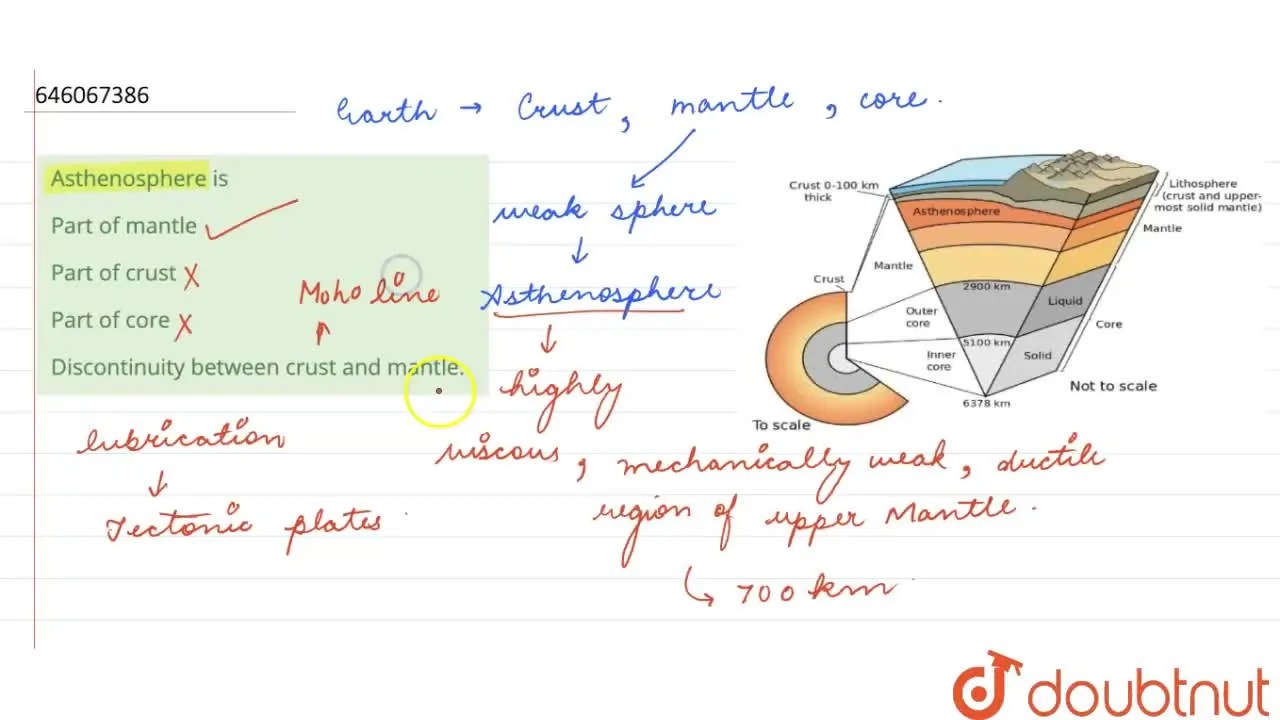 646067386
Earth → Crust, mantle, core.
Asthenosphere is
Part of mantle ✓
Part of crust X
Part of core X
Discontinuity between crust and mantle.
Moho line
weak sphere
Asthenosphere
highly
viscous, mechanically weak, ductile
region of upper Mantle.
700 km
lubrication
Tectonic plates
Crust 0-100 km
thick
Asthenosphere
Lithosphere
(crust and upper-
most solid mantle)
Mantle
Mantle
Crust
2900 km
Liquid
Outer
core
Core
5100 km
Inner
core
Solid
Not to scale
6378 km
To scale
doubtnut